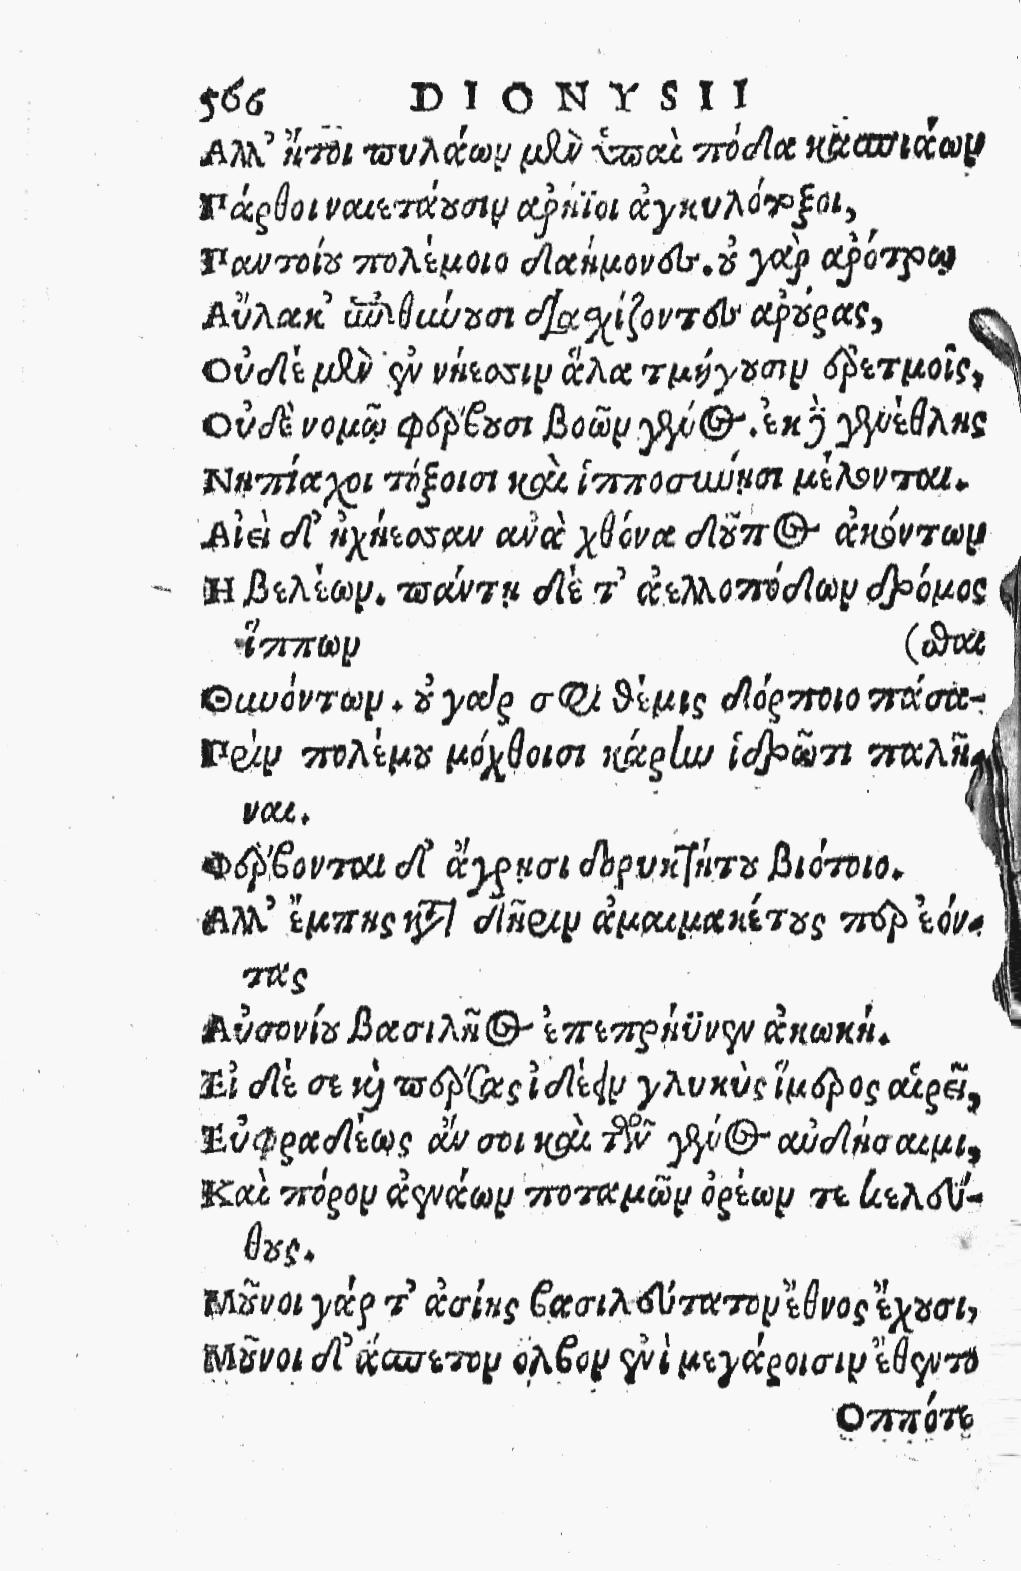 566 DIONYSII
Ἀλλ' ἤτοι πυλάων μὲν ὑπαὶ πόδα κασπιάων
Πάρθοι ναιετάουσιν ἀρήϊοι ἀγκυλότοξοι,
Παντοίου πολέμοιο δαήμονες. οὐ γὰρ ἀρότρῳ
Αὔλακ' ἐπιθύουσι διασχίζοντες ἀρούρας,
Οὐδὲ μὲν ἐν νήεσσιν ἅλα τμήγουσιν ἐρετμοῖς,
Οὐδὲ νομῷ φέρβουσι βοῶν γένος. ἐκ δὲ γενέθλης
Νηπίαχοι τόξοισι καὶ ἱπποσύνῃσι μέλονται.
Αἰεὶ δ' ἠχήεσσαν ἀνὰ χθόνα δοῦπος ἀκόντων
Η βελέων. πάντη δέ τ' ἀελλοπόδων δρόμος
ἵππων (σθαι
Θυνόντων. οὐ γάρ σφι θέμις δόρποιο πάσα-
Πρὶν πολέμου μόχθοισι κάρην ἱδρῶτι παλῆ-
ναι.
Φέρβονται δ' ἄγρῃσι δορυκτήτου βιότοιο.
Ἀλλ' ἔμπης κατὰ δῆριν ἀμαιμακέτους περ ἐόν-
τας
Αὐσονίου βασιλῆος ἐπεπρήϋνεν ἀκωκή.
Εἰ δέ σε καὶ πέρσας ἰδέειν γλυκὺς ἵμερος αἱρεῖ,
Εὐφραδέως ἄν σοι καὶ τῶν γένος αὐδήσαιμι,
Καὶ πόρον ἀενάων ποταμῶν ὀρέων τε κελεύ-
θους.
Μοῦνοι γάρ τ' ἀσίης βασιλεύτατον ἔθνος ἔχουσι,
Μοῦνοι δ' ἄσπετον ὄλβον ἐνὶ μεγάροισιν ἔθεντο
Οππότε